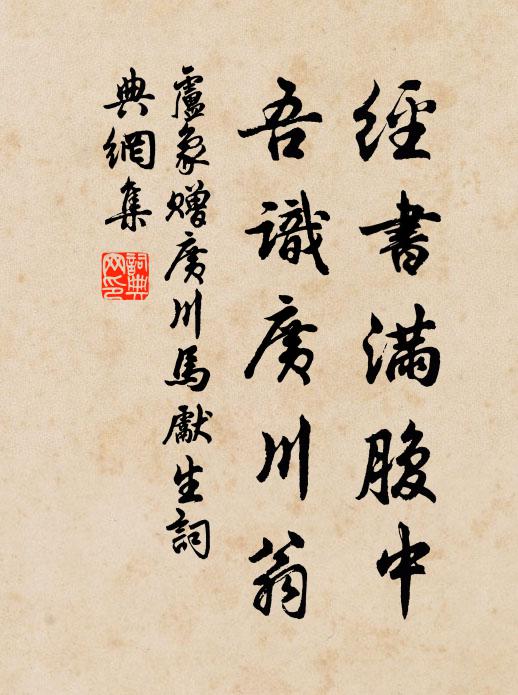 經書滿腹中
吾識廣川翁
盧象贈廣川馬獻生詞
典網集
詞典網印